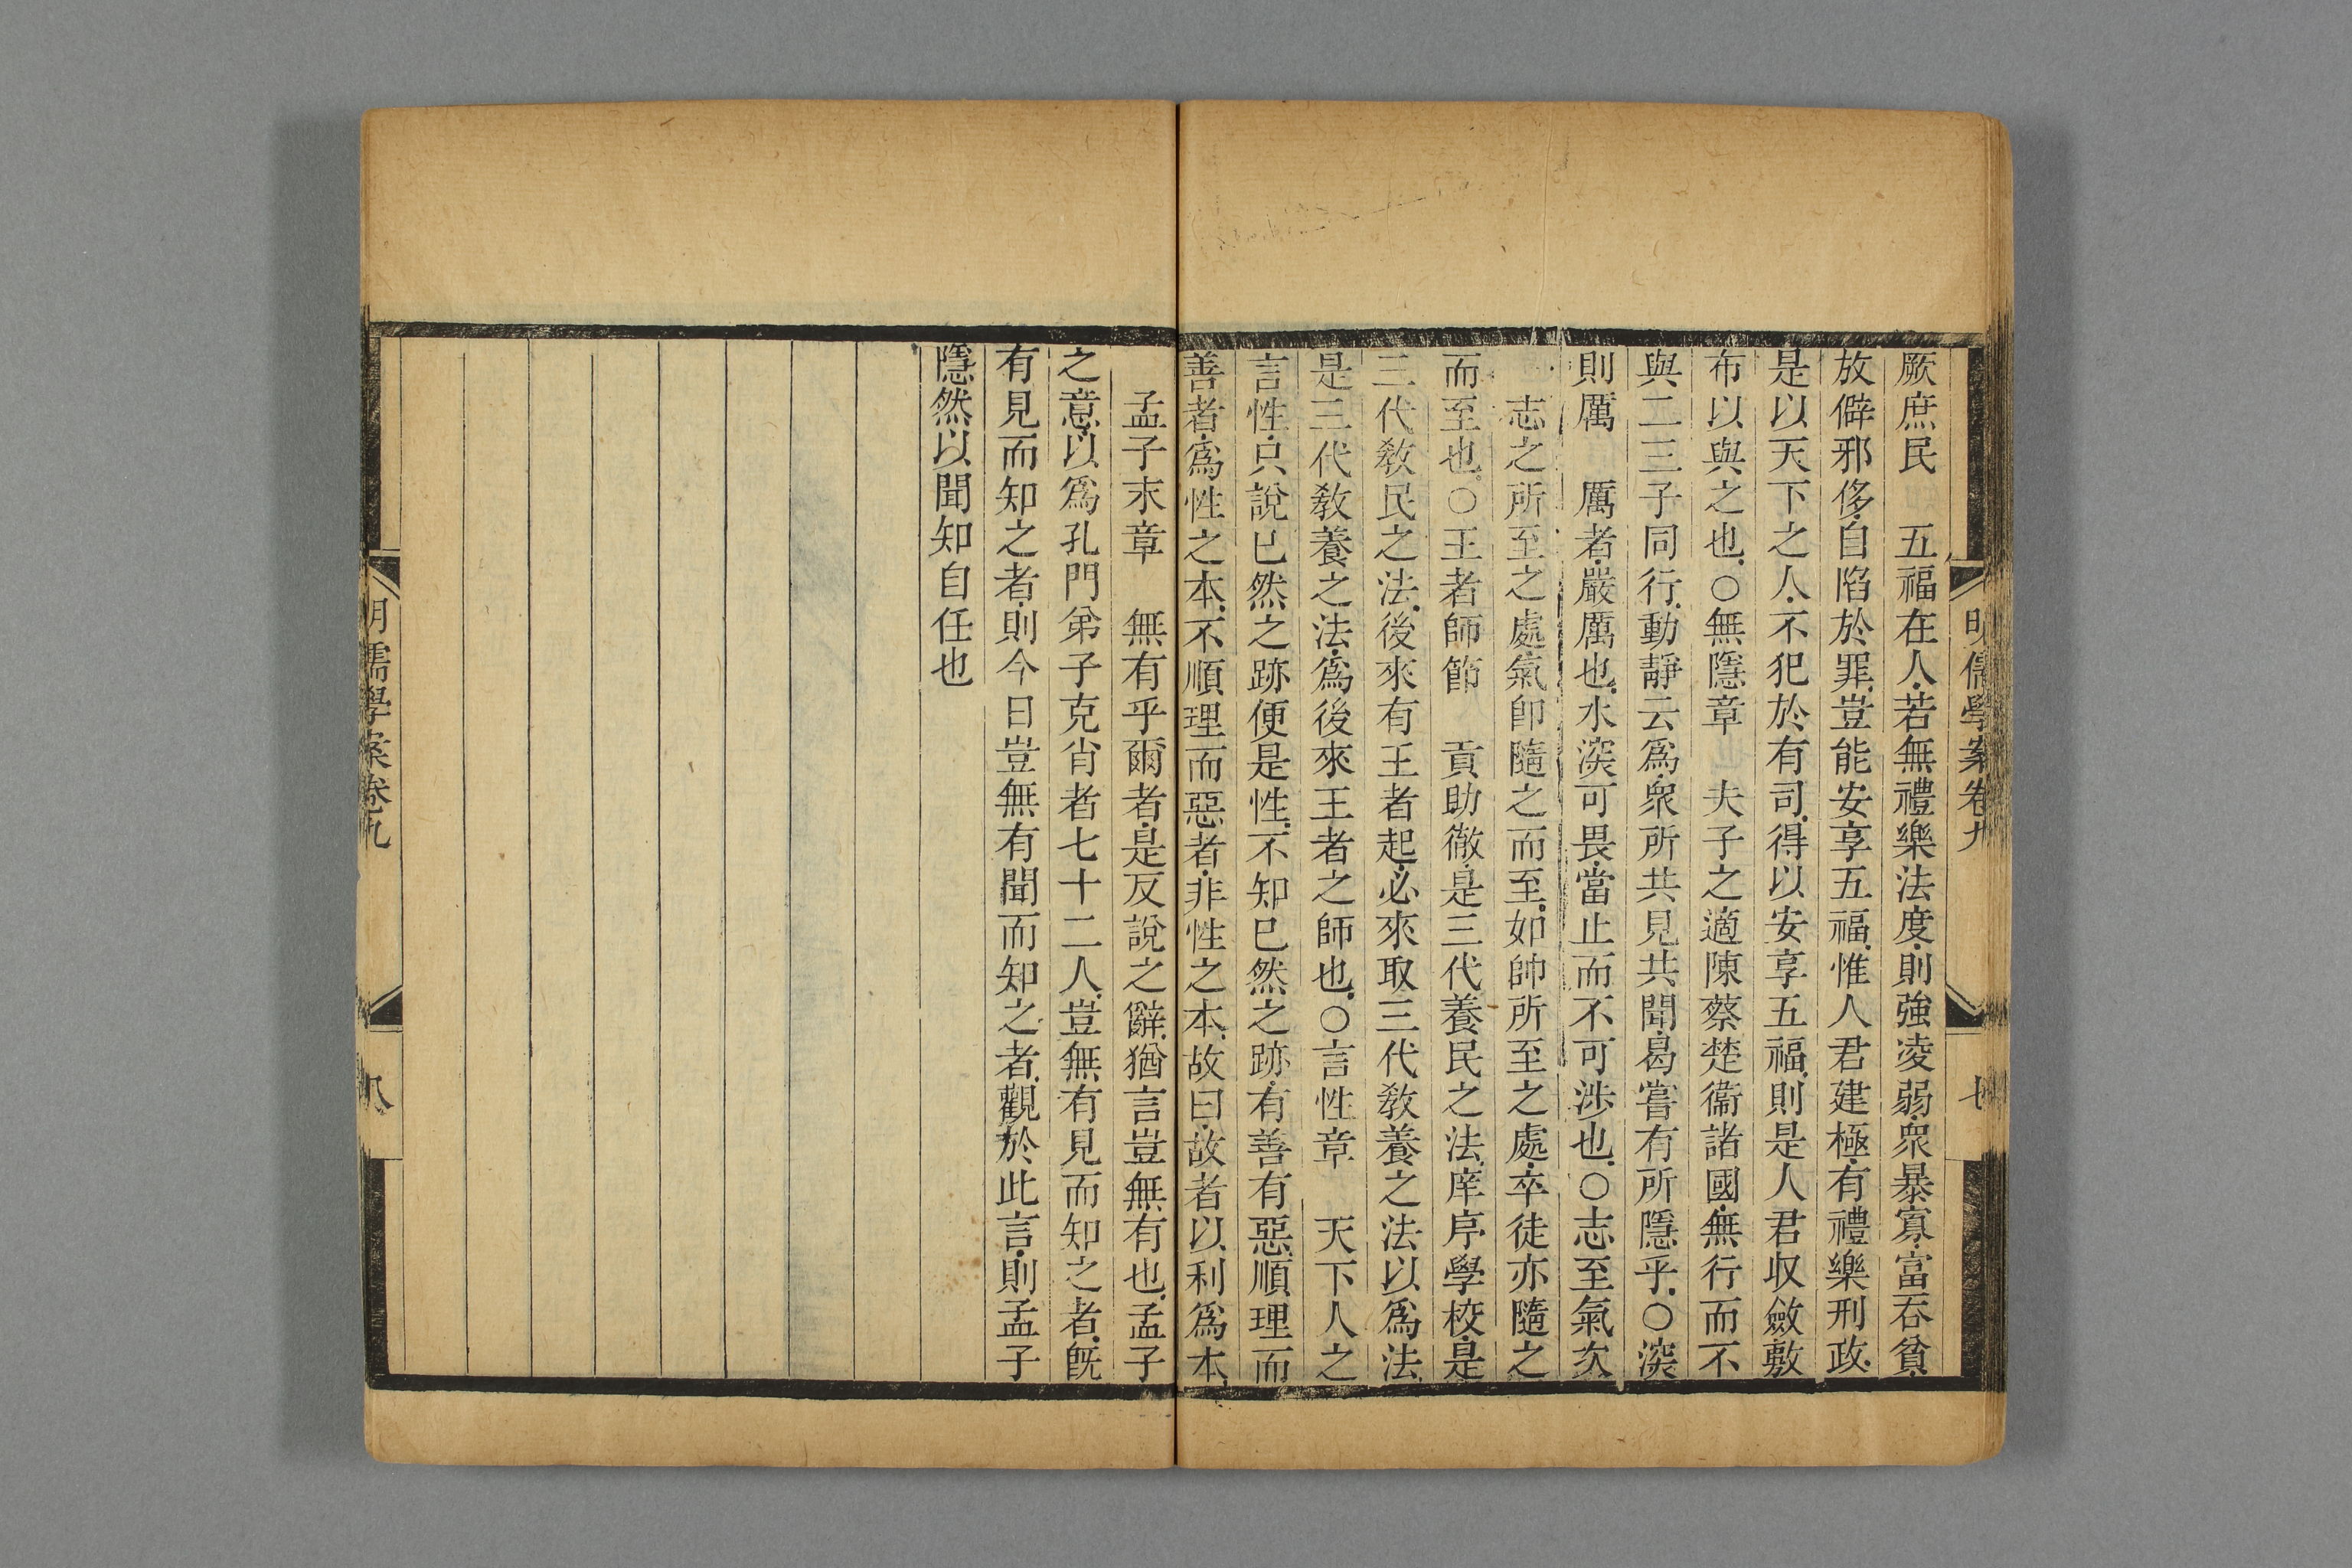 明儒學案卷九
七
厥庶民　五福在人、若無禮樂法度、則強凌弱、衆暴寡、富吞貧、
放僻邪侈、自陷於罪、豈能安享五福、惟人君建極、有禮樂刑政、
是以天下之人、不犯於有司、得以安享五福、則是人君収斂敷
布以與之也、○無隱章　夫子之適陳蔡楚衞諸國、無行而不
與二三子同行、動靜云爲、衆所共見共聞、曷嘗有所隱乎、○深
則厲　厲者、嚴厲也、水深可畏、當止而不可涉也、○志至氣次
志之所至之處、氣卽隨之而至、如帥所至之處、卒徒亦隨之
而至也、○王者師節　貢助徹、是三代養民之法、庠序學校、是
三代敎民之法、後來有王者起、必來取三代敎養之法以爲法、
是三代敎養之法、爲後來王者之師也、○言性章　天下人之
言性、只說已然之跡便是性、不知已然之跡、有善有惡、順理而
善者、爲性之本、不順理而惡者、非性之本、故曰、故者以利爲本、
孟子末章　無有乎爾者、是反說之辭、猶言豈無有也、孟子
之意、以爲孔門弟子克肖者七十二人、豈無有見而知之者、旣
有見而知之者、則今日豈無有聞而知之者、觀於此言、則孟子
隱然以聞知自任也
明儒學案卷九
八